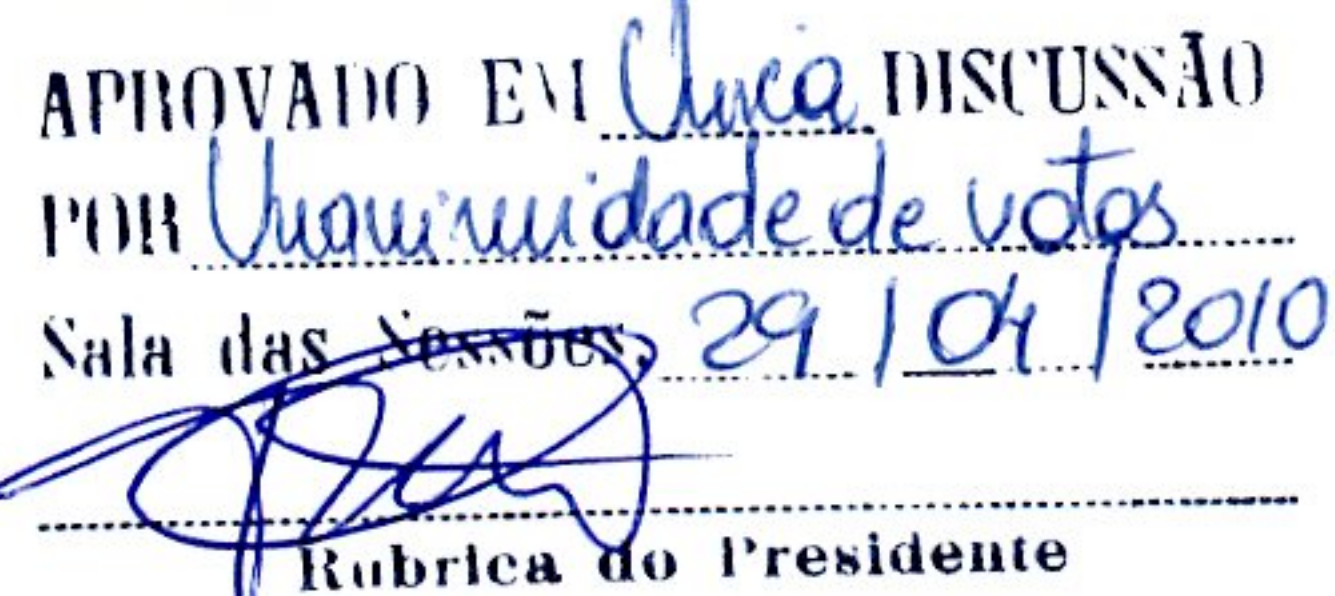 APROVADO EM Única DISCUSSÃO
POR Unanimidade de votos
Sala das Sessões, 29 / 04 / 2010
Rubrica do Presidente